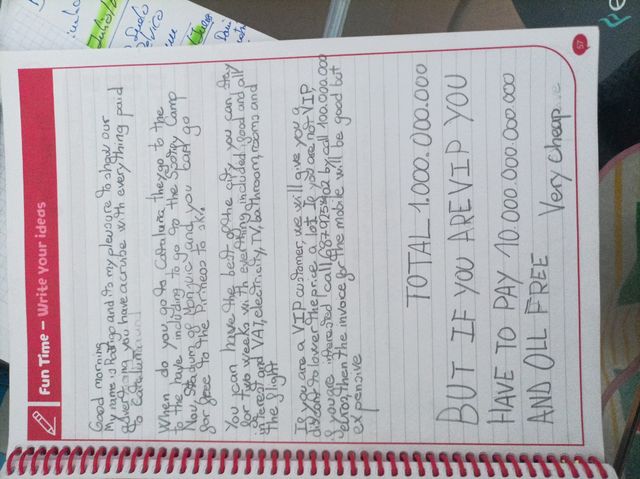 Fun Time – Write your ideas
Good morning
My name is hatngo and its my pleasure to show our
advertising you have a cruise with everything paid
to Cataluña
When do you go to Cataluña, they go to the
to the have including to go to the Spotify Camp
Nou, Stadium of Monjuic and you can go
for free to the Pirineos to sky.
You can have the best of the city, you can stay
for two weeks with everything included: food and all
interest and VAT, electricity, TV, bathroom, rooms and
the flight
If you are a VIP customer, we will give you a
discount to lower the price a lot. If you are not VIP,
if you are interested call by call 100.000.000
euros, then the invoice for the mobile will be good but
expensive
TOTAL 1.000.000.000
BUT IF YOU ARE VIP YOU
HAVE TO PAY 10.000.000.000.000
AND OLL FREE Very cheap
57